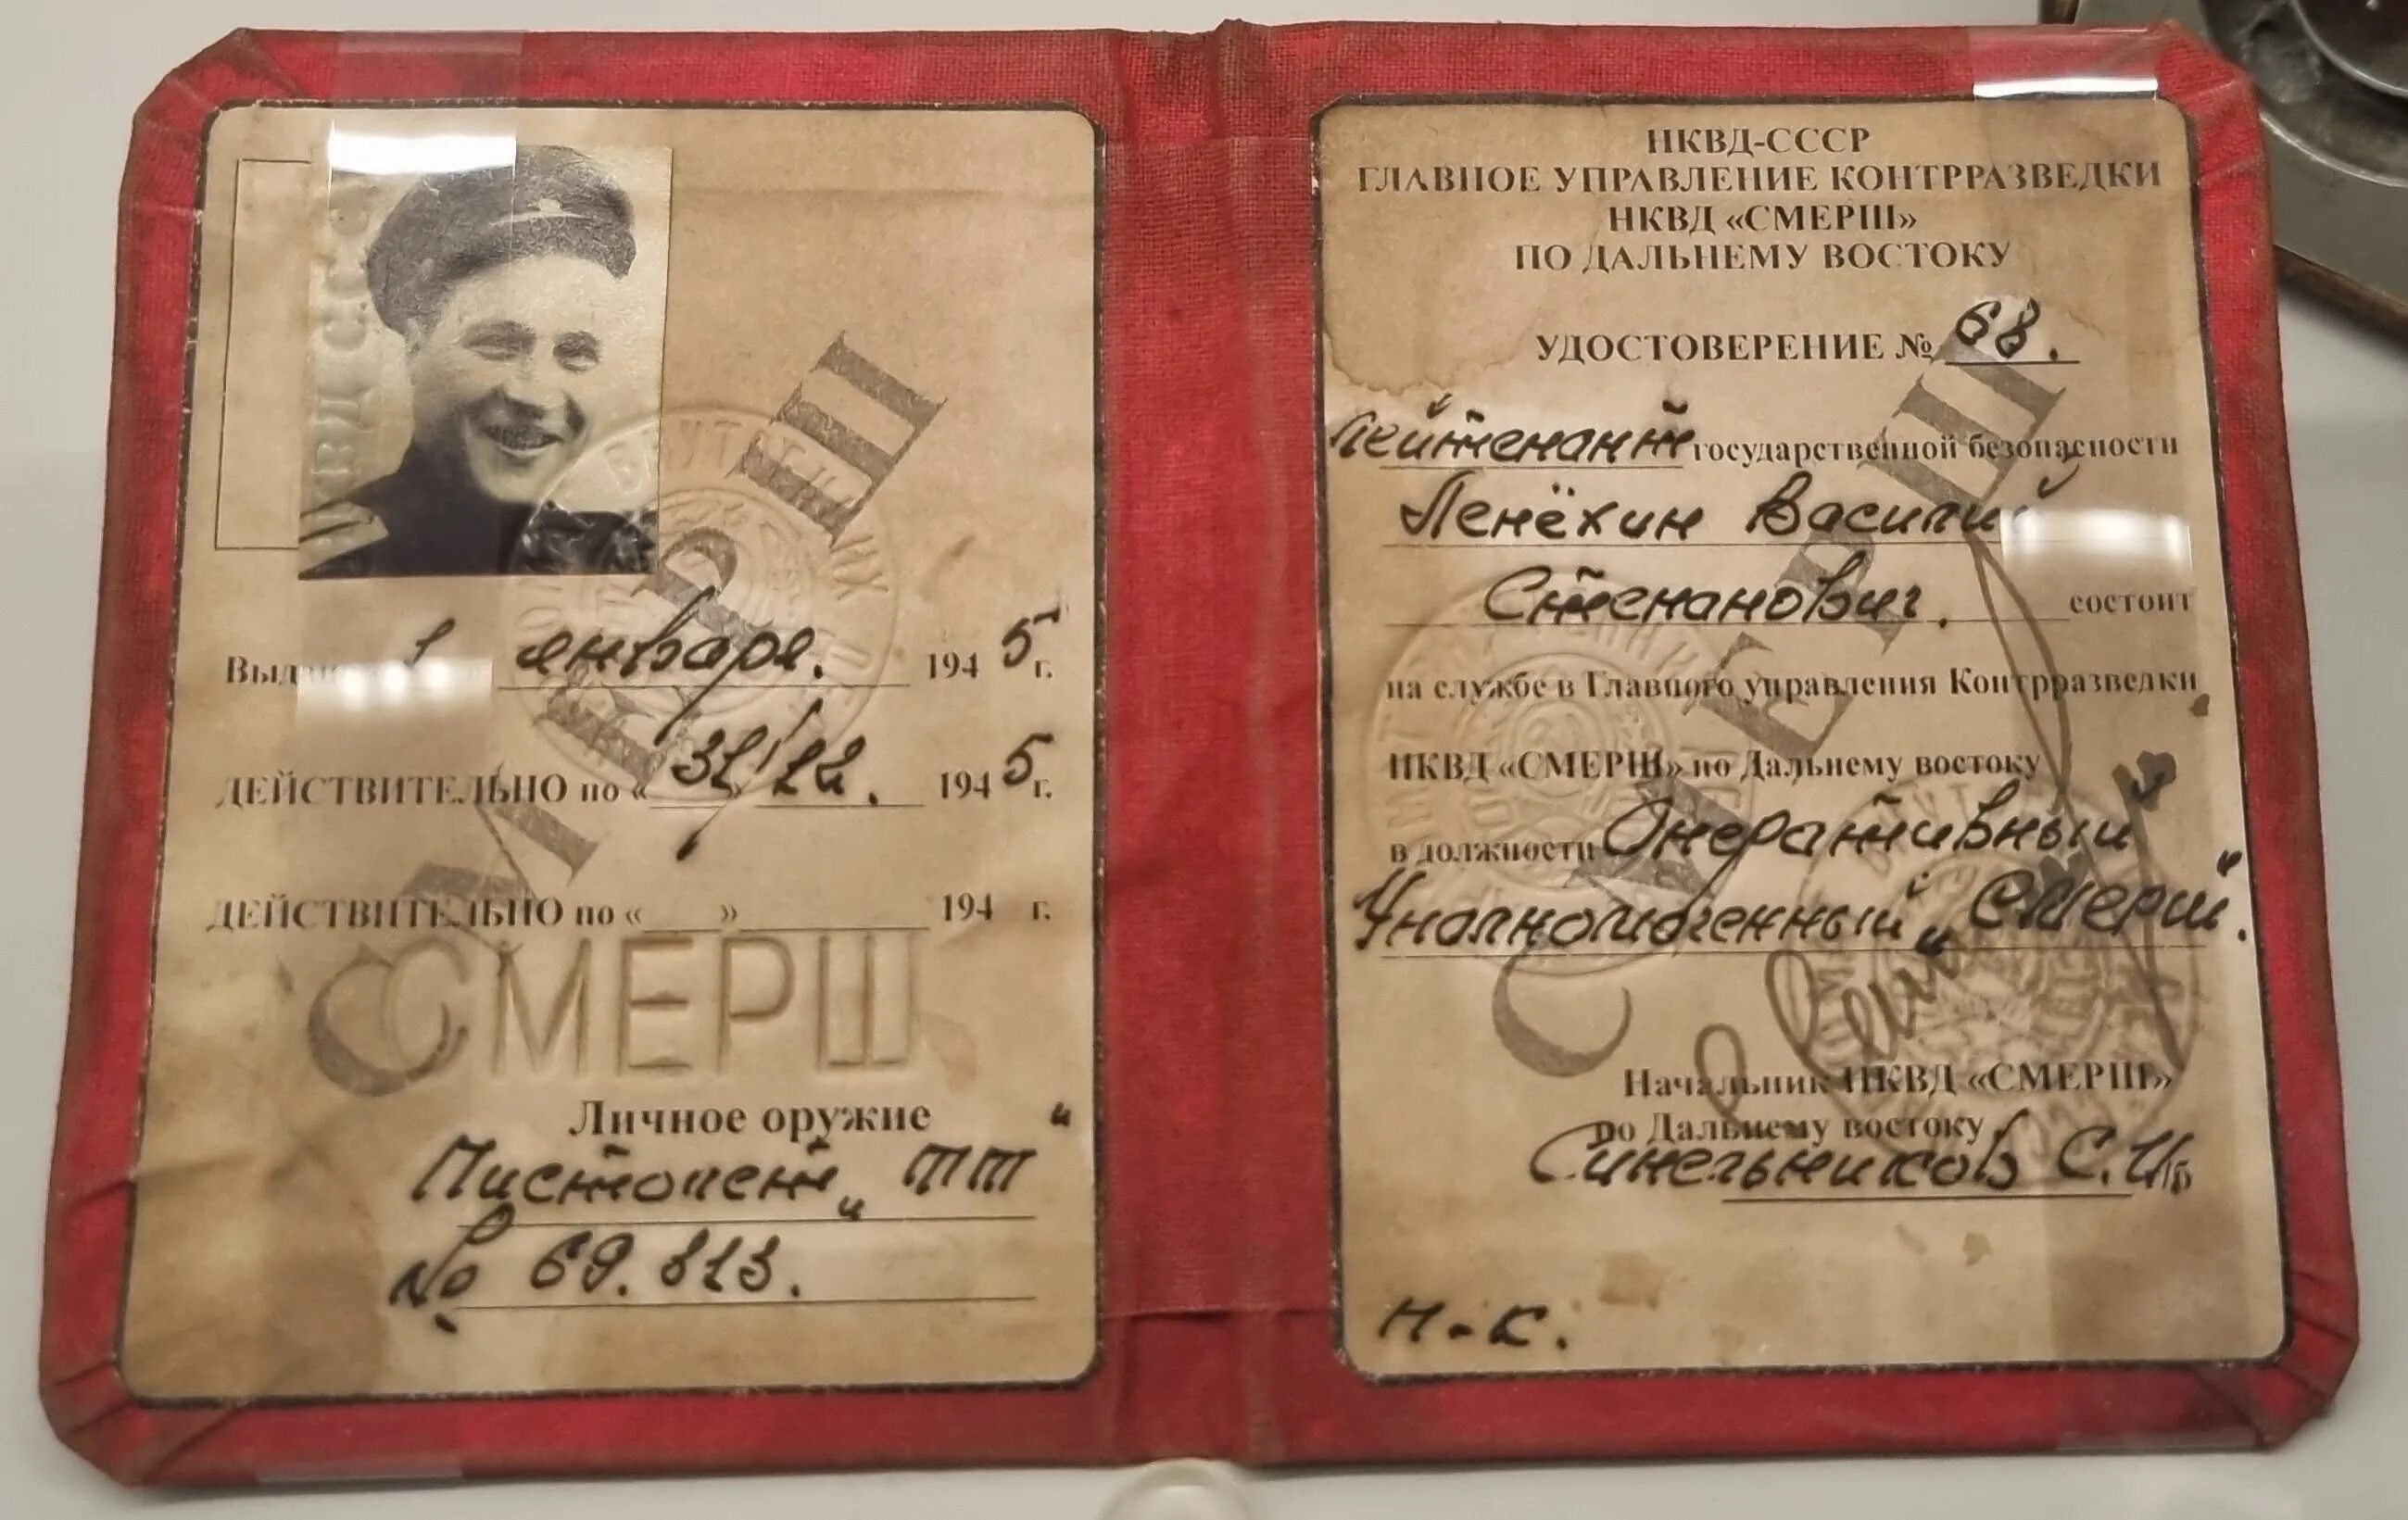 НКВД СССР
Выдано 1 января. 1945 г.
ДЕЙСТВИТЕЛЬНО по «31/12. 1945 г.
ДЕЙСТВИТЕЛЬНО по «___»________194 г.
СМЕРШ
СМЕРШ
Личное оружие
Пистолет „ТТ“
№ 69.813.
НКВД-СССР
ГЛАВНОЕ УПРАВЛЕНИЕ КОНТРРАЗВЕДКИ
НКВД «СМЕРШ»
ПО ДАЛЬНЕМУ ВОСТОКУ
УДОСТОВЕРЕНИЕ № 68.
Лейтенант государственной безопасности
Пенёхин Василий
Степанович. состоит
на службе в Главного управления Контрразведки
НКВД «СМЕРШ» по Дальнему востоку
в должности Оперативный
Уполномоченный „Смерш“.
СМЕРШ
Начальник НКВД «СМЕРШ»
по Дальнему востоку
Синельников С.И.
Н-К.